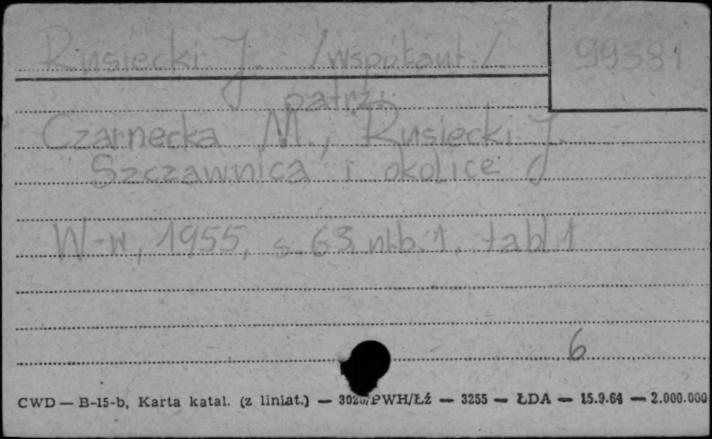 Rusiecki J. /współaut./. 99381
patrz:
Czarnecka M., Rusiecki J.
Szczawnica i okolice
W-w, 1955, s. 63 nlb. 1, tabl. 1
6
CWD — B-15-b, Karta katal. (z liniat.) — 3020/PWH/Łź — 3255 — ŁDA — 15.9.64 — 2.000.000